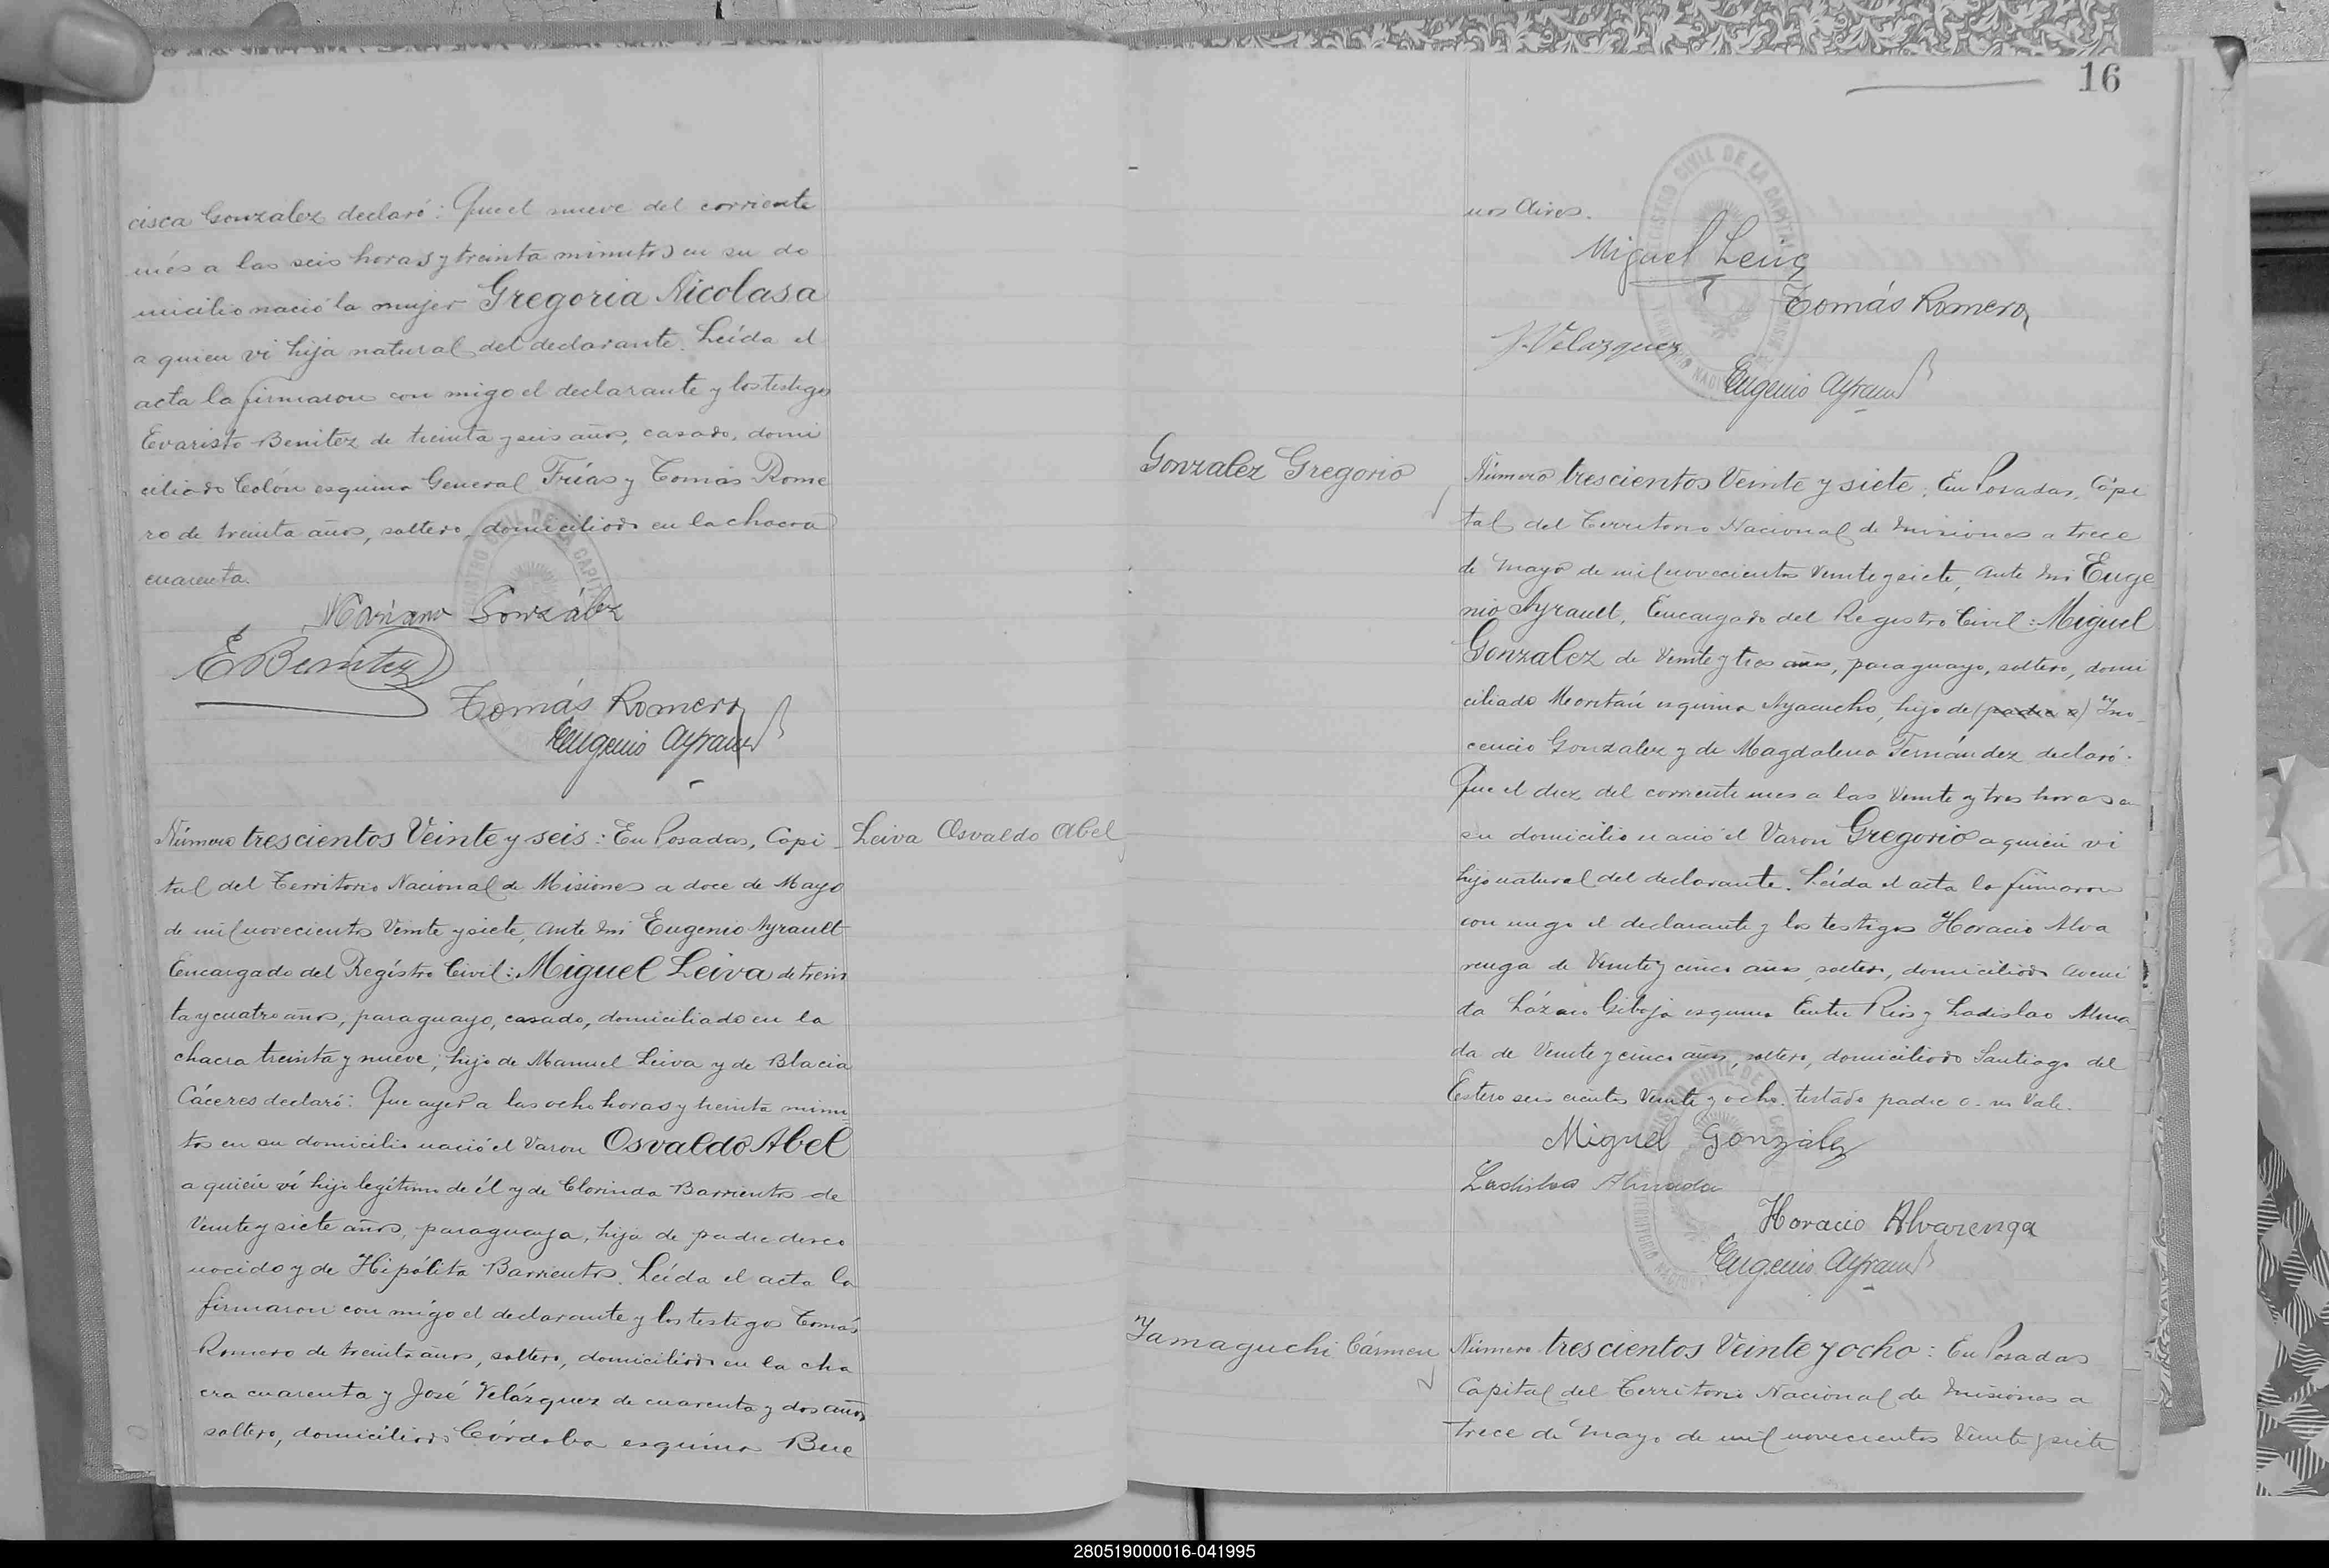 cisca González declaró: Que el nueve del corriente
més a las seis horas y treinta minutos en su do
micilio nació la mujer Gregoria Nicolasa
a quien vi hija natural del declarante. Leída el
acta la firmaron con migo el declarante y los testigos
Evaristo Benitez de treinta y seis años, casado, domi
ciliado Colón esquina General Frías y Tomás Rome
ro de treinta años, soltero, domiciliado en la chacra
cuarenta.
Mariano González
E Benitez
Tomás Romero
Eugenio Ayrault
Número trescientos Veinte y seis: En Posadas, Capi
Leiva Osvaldo Abel
tal del Territorio Nacional de Misiones a doce de Mayo
de mil novecientos Veinte y siete, ante mi Eugenio Ayrault
Encargado del Registro Civil: Miguel Leiva de trein
ta y cuatro años, paraguayo, casado, domiciliado en la
chacra treinta y nueve, hijo de Manuel Leiva y de Blacia
Cáceres declaró: Que ayer a las ocho horas y treinta minu
tos en su domicilio nació el Varon Osvaldo Abel
a quién ví hijo legítimo de él y de Clorinda Barrientos de
Veinte y siete años, paraguaya, hija de padre desco
nocido y de Hipólita Barrientos. Leída el acta la
firmaron con migo el declarante y los testigos Tomás
Romero de treinta años, soltero, domiciliado en la cha
cra cuarenta y José Velázquez de cuarenta y dos años
soltero, domiciliado Córdoba esquina Bue
16
nos Aires.
Miguel Leiva
Tomás Romero
J. Velazquez
Eugenio Ayrault
Gonzalez Gregorio
Número trescientos Veinte y siete: En Posadas, Capi
tal del Territorio Nacional de Misiones a trece
de Mayo de mil novecientos Veinte y siete, ante mi Euge
nio Ayrault, Encargado del Registro Civil: Miguel
Gonzalez de Veinte y tres años, paraguayo, soltero, domi
ciliado esquina Ayacucho, hijo de (padre o) Ino
cencio Gonzalez y de Magdalena Fernández declaró:
Que el diez del corriente mes a las Veinte y tres horas en
su domicilio nació el Varon Gregorio a quién vi
hijo natural del declarante. Leída el acta la firmaron
con migo el declarante y los testigos Horacio Alva
renga de Veinte y cinco años, soltero, domiciliado Aveni
da Lázaro Giboja esquina Entre Rios y Ladislao Alma
da de Veinte y cinco años, soltero, domiciliado Santiago del
Estero seis cientos Veinte y ocho. testado padre o. no Vale.
Miguel González
Ladislao Almada
Horacio Alvarenga
Eugenio Ayrault
Yamaguchi Cármen
Número trescientos Veinte y ocho: En Posadas
Capital del Territorio Nacional de Misiones a
trece de Mayo de mil novecientos Veinte y siete
280519000016-041995